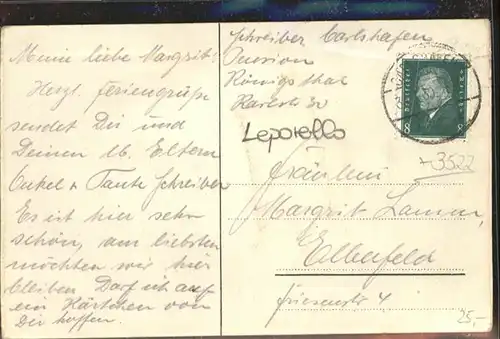 Meine liebe Margrit!
Herzl. Feriengrüße
sendet Dir und
Deinen lb. Eltern
Onkel u Tante Schreiber
Es ist hier sehr
schön, am liebsten
möchten wir hier
bleiben Darf ich auf
ein Kärtchen von
Dir hoffen.
Schreiber Carlshafen
Pension
Leporello
8 8
+3522
Fräulein
Margrit
Elberfeld
Friesenstr 4
25,-